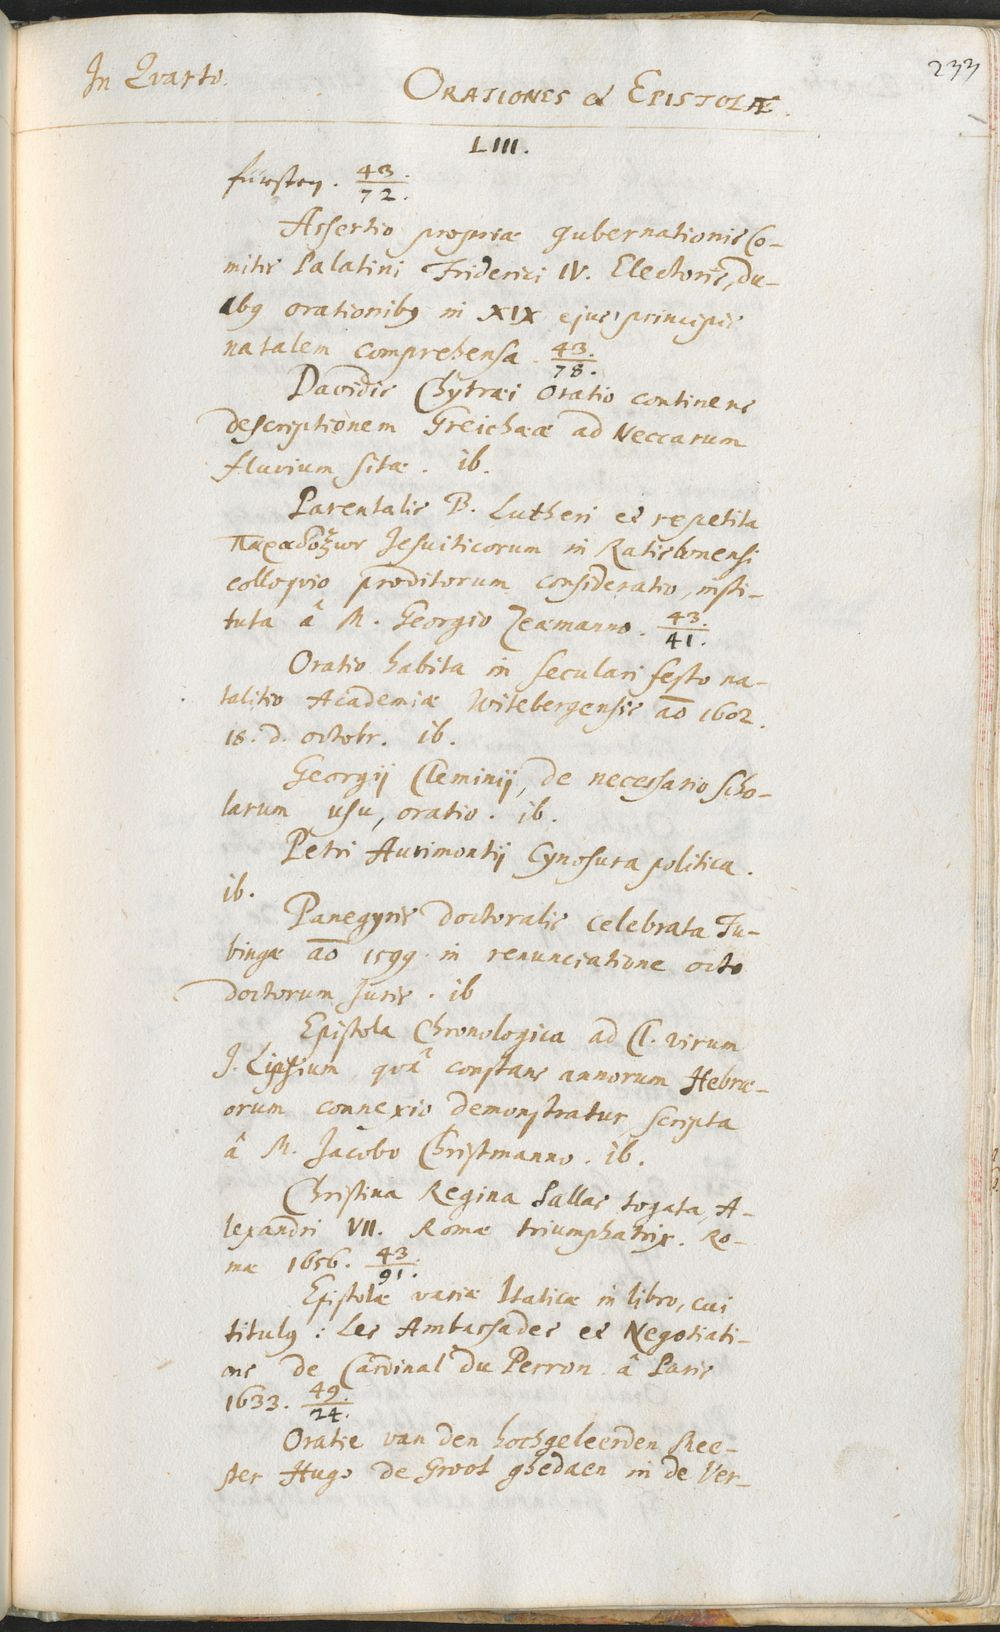 In Qvarto.
ORATIONES & EPISTOLÆ.
233
LIII.
fürsten. 43./72.
Assertio propriæ gubernationis Co-
mitis Palatini Friderici IV. Electoris, du-
abꝫ orationibꝫ in XIX ejus principis
natalem comprehensa. 43./78.
Davidis Chytræi Oratio continens
descriptionem Greichææ ad Neccarum
fluvium sitæ. ib.
Parentalis B. Lutheri et repetita
παραδόξων Jesuiticorum in Ratisbonensi
colloqvio proditorum consideratio, insti-
tuta â M. Georgio Zeæmanno. 43./41.
Oratio habita in seculari festo na-
talitio Academiæ Witebergensis aō 1602.
18. d. octobr. ib.
Georgij Cleminij, de necessario scho-
larum usu, oratio. ib.
Petri Aurimontij Cynosura politica.
ib.
Panegyris doctoralis celebrata Tu-
bingæ aō 1599. in renunciatione octo
doctorum Juris. ib
Epistola Chronologica ad Cl. virum
J. Lipsium, qvâ constans annorum Hebræ-
orum connexio demonstratur scripta
â M. Jacobo Christmanno. ib.
Christina Regina Pallas togata, A-
lexandri VII. Romæ triumphatrix. Ro-
mæ 1656. 43./91.
Epistolæ variæ Italicæ in libro, cui
titulꝫ: Les Ambassades et Negotiati-
ons de Cardinal du Perron. â Paris
1633. 49./24.
Oratie van den hochgeleerden Mee-
ster Hugo de Groot ghedaen in de Ver-